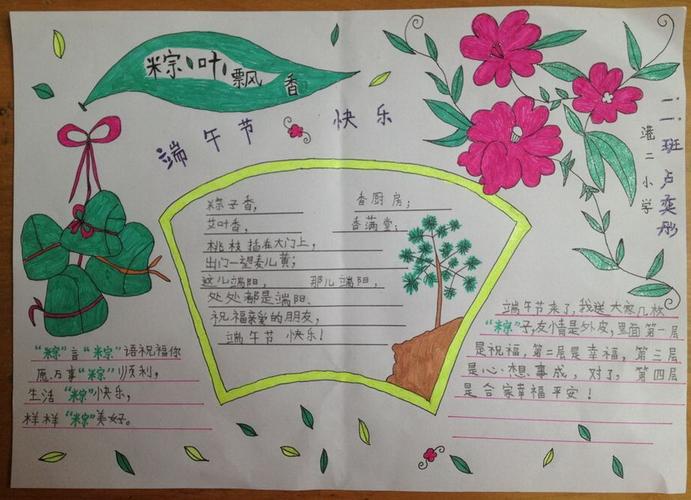 粽叶飘香
端午节 快乐
二.一班 卢奕彤
港二小学
粽子香, 香厨房;
艾叶香, 香满堂;
桃枝插在大门上,
出门一望麦儿黄;
这儿端阳, 那儿端阳,
处处都是端阳.
祝福亲爱的朋友,
端午节 快乐!
"粽"言"粽"语祝福你
愿万事"粽"顺利,
生活"粽"快乐,
样样"粽"美好。
端午节来了,我送大家几枚
"粽"子,友情是外皮,里面第一层
是祝福,第二层是幸福,第三层
是心·想·事成,对了,第四层
是合家幸福平安!